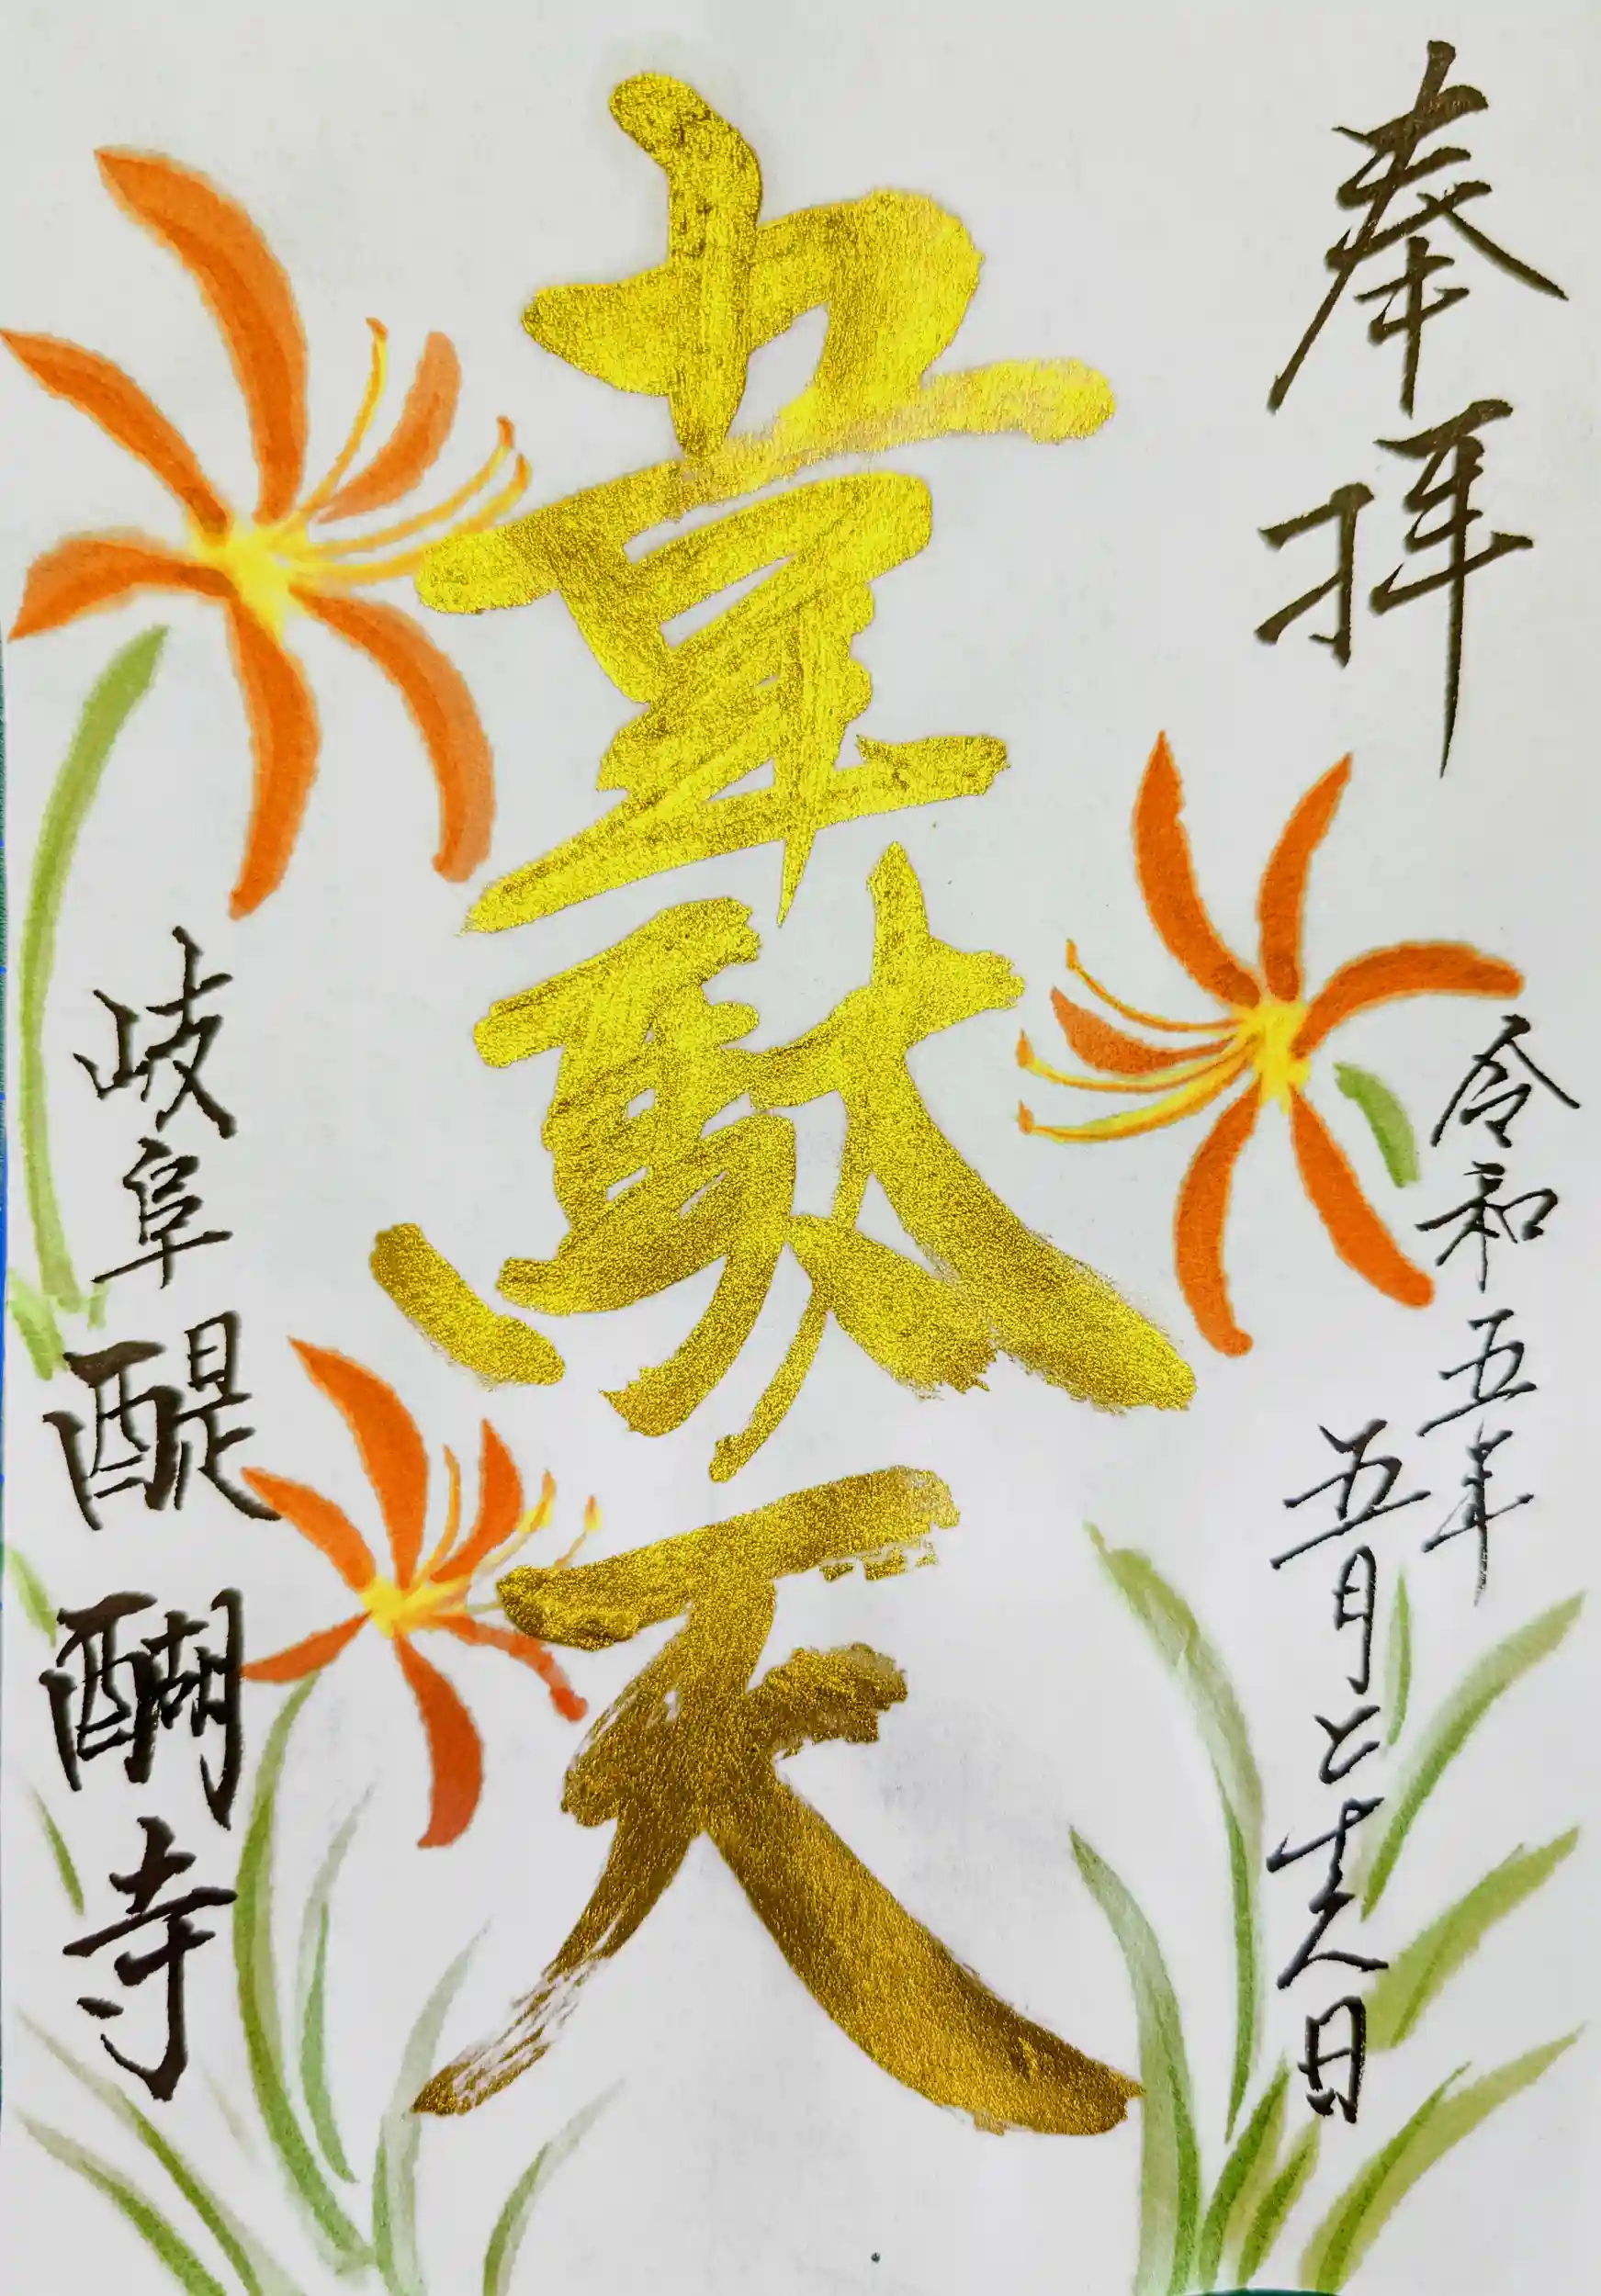 奉拝
令和五年
五月二十六日
韋駄天
岐阜 醍醐寺